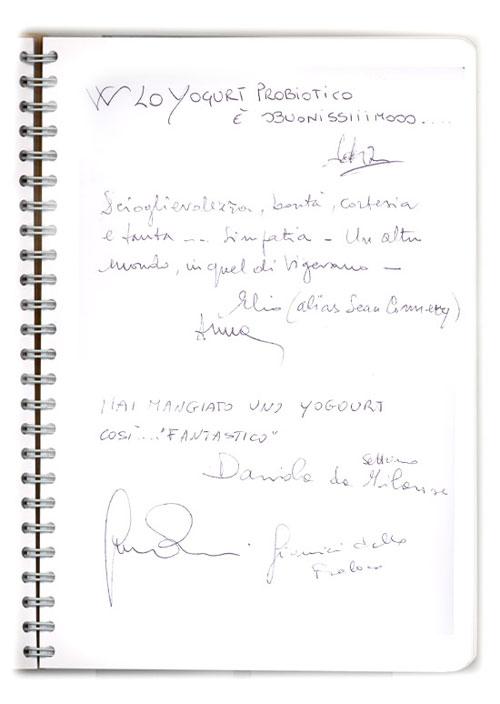 W LO YOGURT PROBIOTICO
È BUONISSIIIMOOO....
Scioglievolezza, bontà, cortesia
e tanta ... simpatia - Un altro
mondo, in quel di Vigevano -
Elio (alias Sean Connery)
Anna
MAI MANGIATO UNO YOGOURT
COSÌ..."FANTASTICO"
Danilo da Settimo Milanese